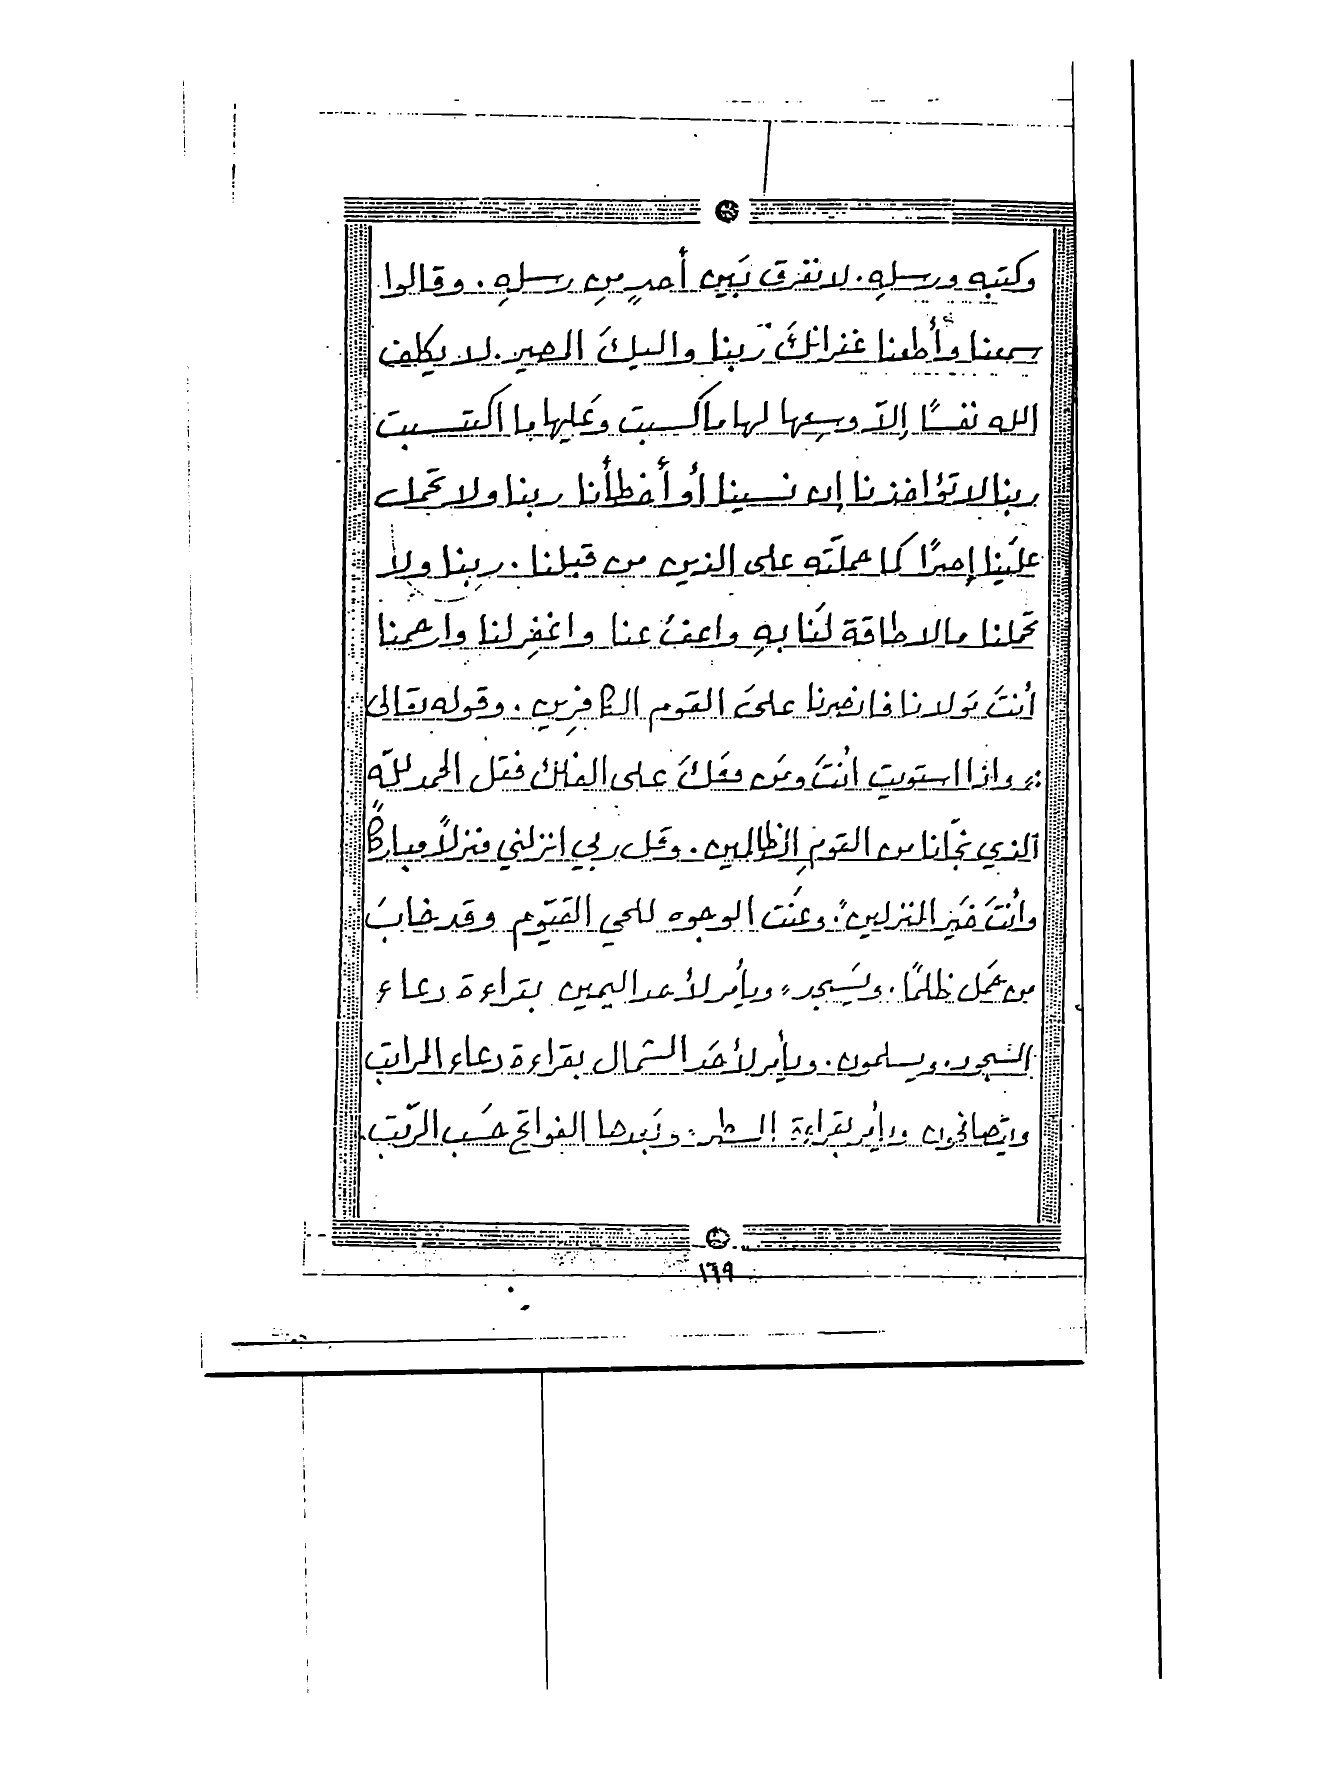 وكتبه ورسلهِ. لا نفرق بَين أُحدٍ مِن رسلهِ. وقالوا
سمعنا وأُطعنا غفرانكَ رّبنا واليكَ المصير. لا يكلف
الله نفسًا إلاّ وسِعها لها ما كسبت وعَليها ما اكتسبت
ربنا لا تؤاخذنا إن نسينا أُو أُخطأُنا ربنا ولا تحمل
علَينا إصرًا كما حملتَه على الذين من قبلنا. ربنا ولا
تحملنا مالا طاقة لَنا بهِ واعفُ عنا واغفِر لنا وارحمنا
أنتَ مَولانا فانصرنا علىَ القوم الكافرِين. وقوله تعالى
:, واذا استويت انُتَ ومَن معَكَ على الفلك فقل الحمد للّه
الذي نجّانا من القومِ الظالمين. وقل ربي انزلني منزلاً مباركاً
وأنُتَ خَير المنزلين: وعَنت الوجوه للحي القيّوم وقد خابَ
من حمَل ظلمًا. ويسَجد، ويأُمر لأُحد اليمين بقراءة دعاء
السّجود. ويسلمون. ويأُمر لأُحَد الشمال بقراءة دعاء المراتب
ويتصافحون ويأُمر بقراءة السطر: وبَعدها الفواتح حسَب الرّتب.
١٦٩